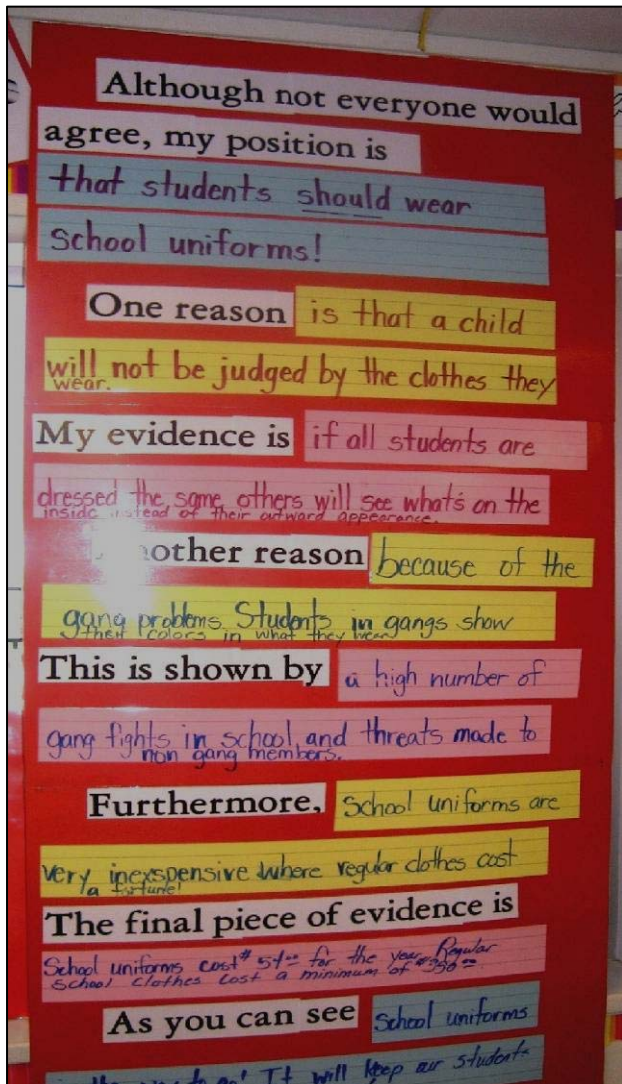 Although not everyone would
agree, my position is
that students should wear
School uniforms!
One reason is that a child
will not be judged by the clothes they
wear.
My evidence is if all students are
dressed the same others will see what's on the
inside instead of their outward appearance.
another reason because of the
gang problems Students in gangs show
their colors in what they wear
This is shown by a high number of
gang fights in school and threats made to
non gang members.
Furthermore, School uniforms are
very inexspensive where regular clothes cost
a fortune!
The final piece of evidence is
School uniforms cost $54.00 for the year. Regular
school clothes cost a minimum of
As you can see School uniforms
to go! It will keep our students